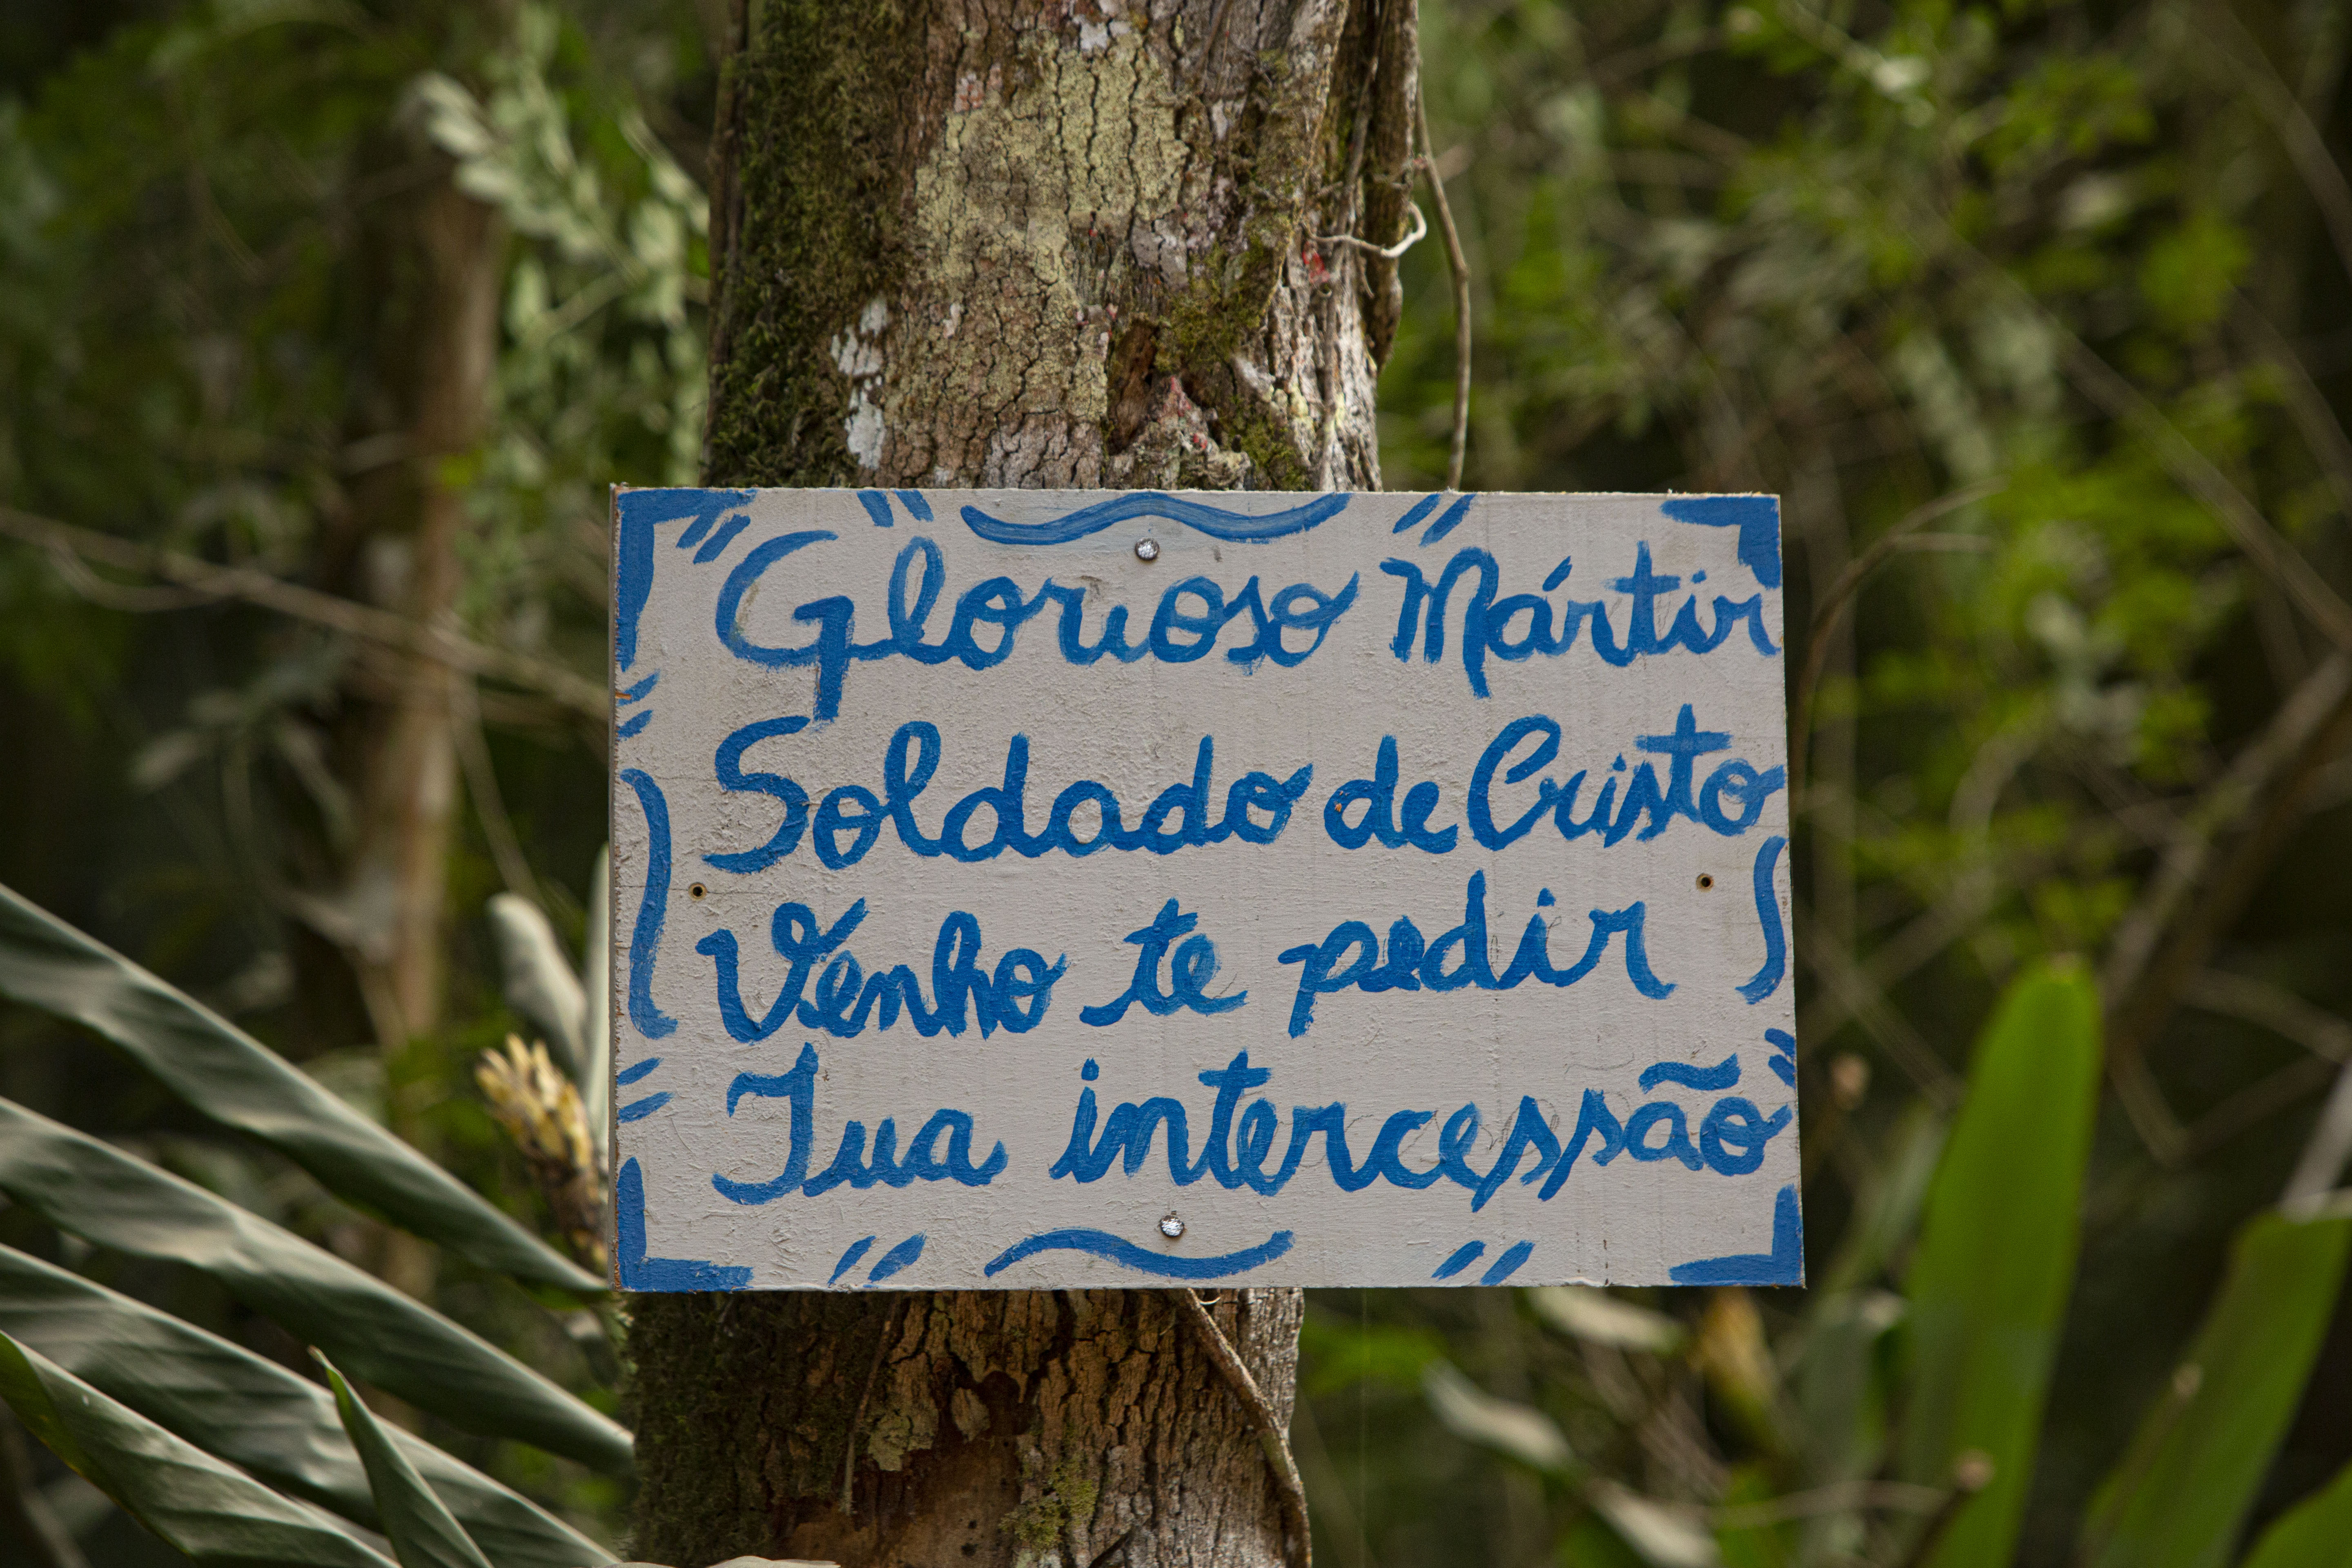 Glorioso Mártir
Soldado de Cristo
Venho te pedir
Tua intercessão